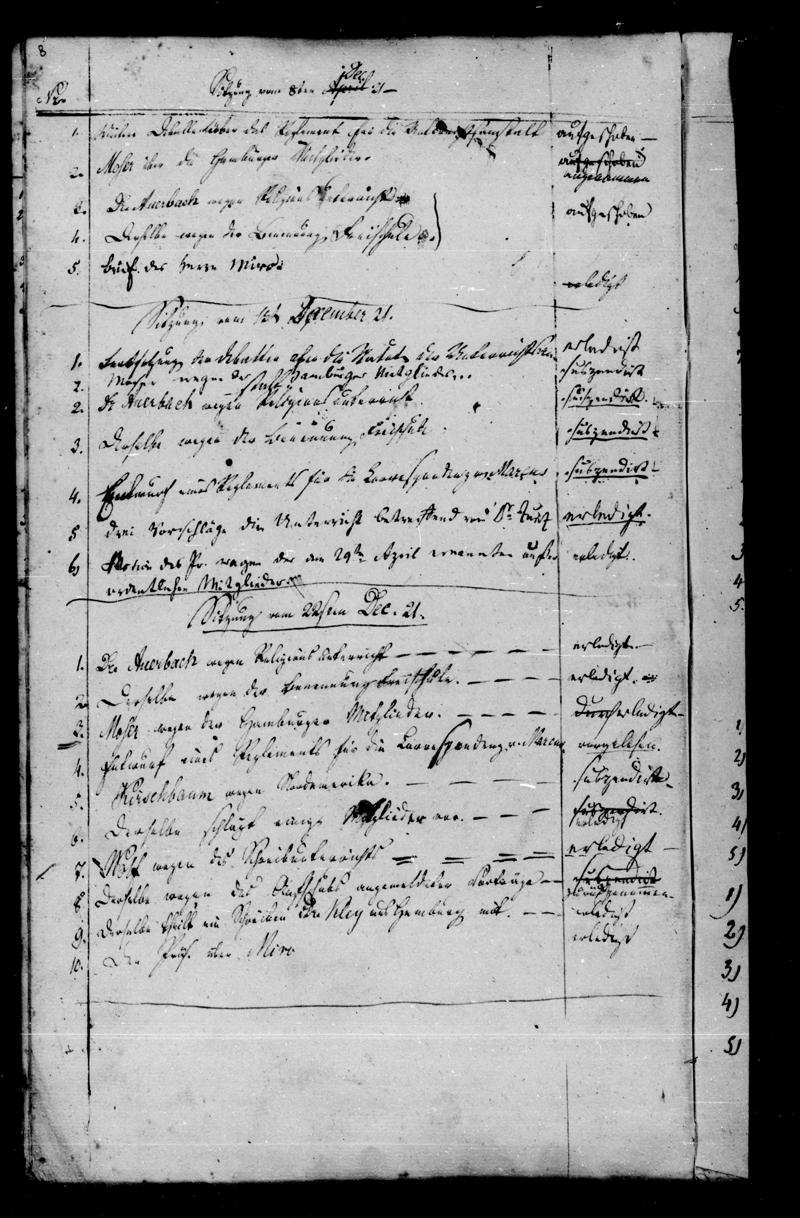 8
No. Sitzung vom 8ten Dec. 21
1. über das Reglement für die aufgeschoben
2. Moser über die Hamburger Mitglieder. aufgeschoben angenommen
3. Dr Auerbach wegen Religionsunterricht aufgeschoben
4. Derselbe wegen der Benennung Freischule.
5. Brief des Herrn Miro erledigt
Sitzung vom December 21.
1. Fortsetzung der Debatten über die Statuten der Unterrichts erledigt
2. Moser wegen der Hamburger Mitglieder. suspendirt
2. Dr Auerbach wegen Religionsunterricht. suspendirt.
3. Derselbe wegen der Benennung Freischule suspendirt
4. Entwurf eines Reglements für die Correspondenz von Marcus suspendirt
5 drei Vorschläge den Unterricht betreffend von Dr. erledigt.
6) des Pr. wegen der am 29ten April ernannten außer erledigt.
ordentlichen Mitglieder
Sitzung vom 22sten Dec. 21.
1. Dr Auerbach wegen Religionsunterricht erledigt.
2. Derselbe wegen der Benennung Freischule. erledigt.
3. Moser wegen der Hamburger Mitglieder. erledigt
4. Entwurf eines Reglements für die Correspondenz v. Marcus vorgelesen.
5. Kirschbaum wegen Nordamerika. suspendirt.
6. Derselbe schlägt einige Mitglieder vor. suspendirt. erledigt
7. Wolf wegen des Schreibunterrichts erledigt
8. Derselbe wegen des angemeldeten Vortrags suspendirt zurückgenommen
9. Derselbe theilt ein Schreiben Dr Kley aus Hamburg mit. erledigt
10. Der Präs. über Miro erledigt
1)
2)
3)
4)
5)
1)
2)
3)
4)
5)